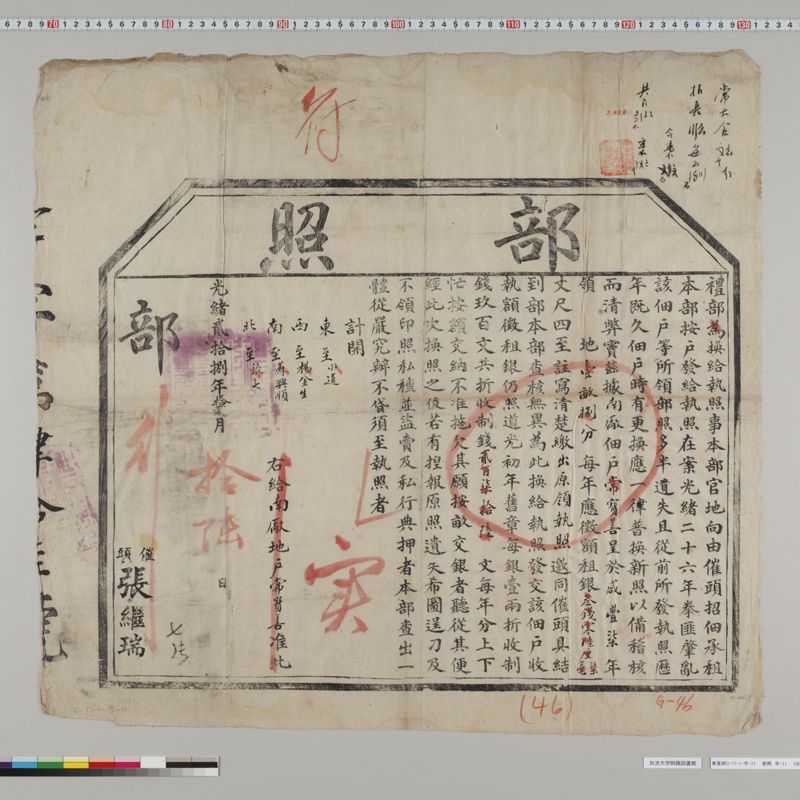 部照
禮部為換給執照事本部官地向由催頭招佃承租
本部按戶發給執照在案光緒二十六年拳匪肇亂
該佃戶等所領部照多半遺失且從前所發執照歷
年既久佃戶時有更換應一律普換新照以備稽核
而清弊竇茲據南廠佃戶常寶善呈於咸豐柒年
領 地壹畝捌分每年應徵額租銀叁錢零陸厘
丈尺四至註寫清楚繳出原領執照邀同催頭具結
到部本部查核無異為此換給執照發交該佃戶收
執額徵租銀仍照道光初年舊章每銀壹兩折收制
錢玖百文共折收制錢貳百柒拾 文每年分上下
忙按額交納不准拖欠其願按畝交銀者聽從其便
經此次換照之後若有捏報原照遺失希圖逞刁及
不領印照私種並盜賣及私行典押者本部查出一
體從嚴究辦不貸須至執照者
計開
東至小道
西至楊金生
南至馬興順
北至張七
右給南廠地戶常寶善准此
光緒貳拾捌年拾貳月拾陸日
部
催頭張繼瑞
符
实
(46)
G-46
筑波大学附属図書館